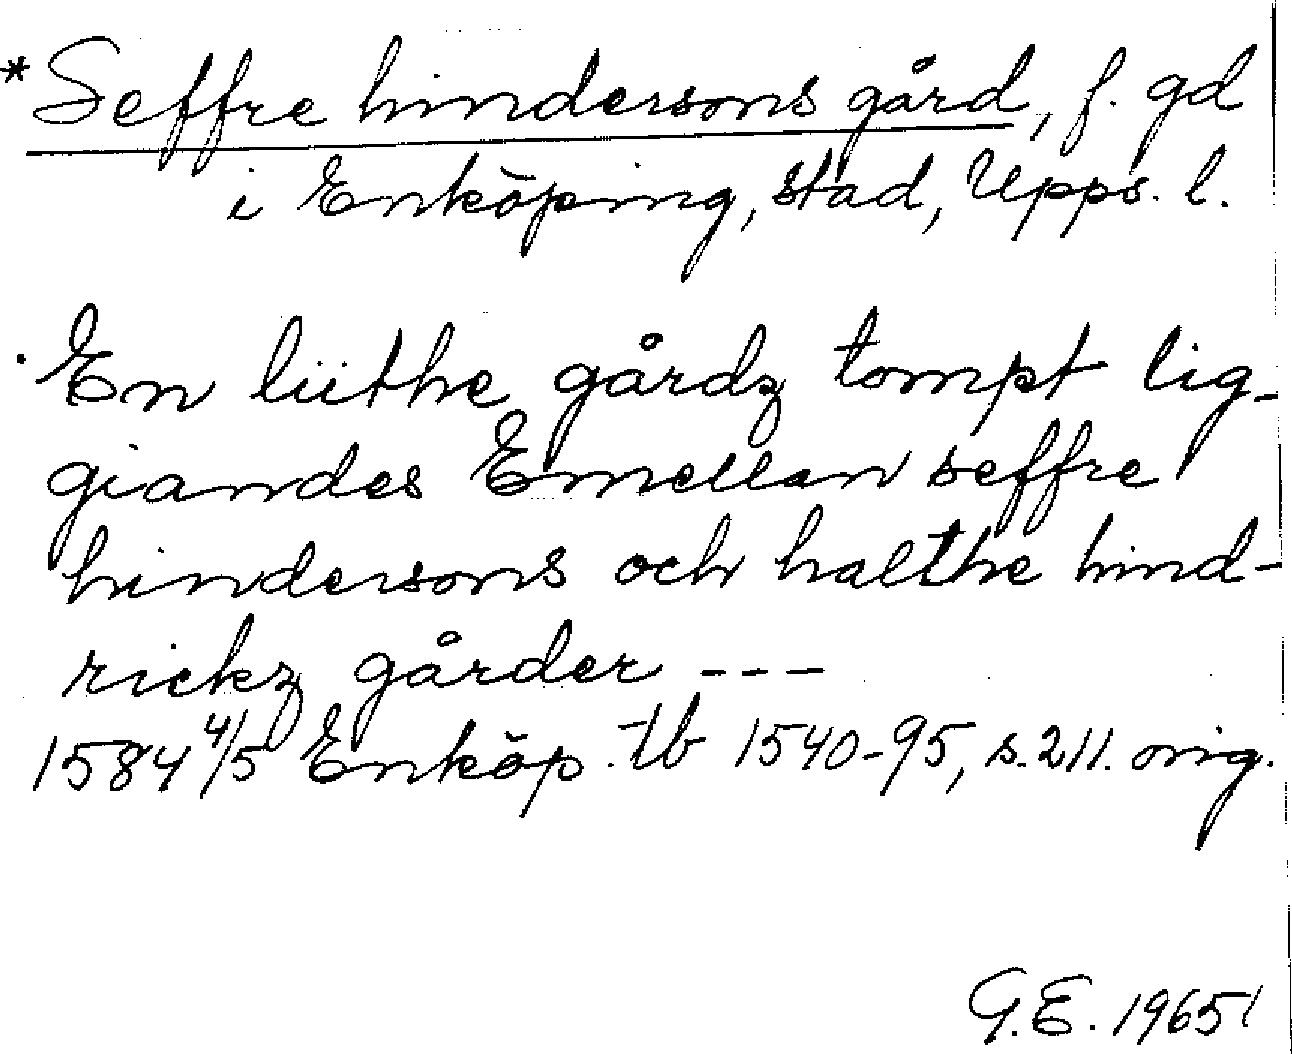 *Seffre hindersons gård, f. gd
i Enköping, stad, Upps. l.
En liithe gårdz tompt lig-
giandes Emellan seffre
hindersons och halthe hind-
rickz gårder ---
1584 4/5 Enköp. tb 1540-95, s. 211. orig.
G.E. 1965